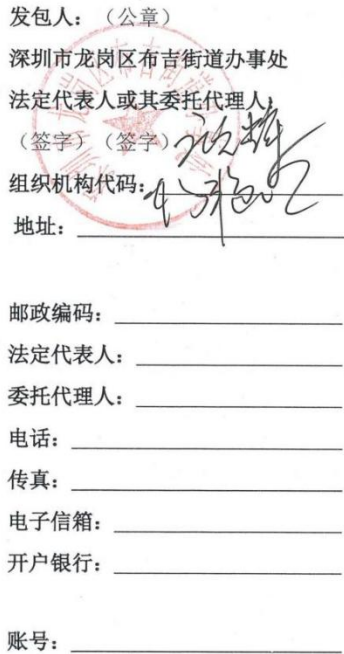 发包人：（公章）
深圳市龙岗区布吉街道办事处
法定代表人或其委托代理人：
（签字）（签字）
组织机构代码：
地址：
邮政编码：
法定代表人：
委托代理人：
电话：
传真：
电子信箱：
开户银行：
账号：